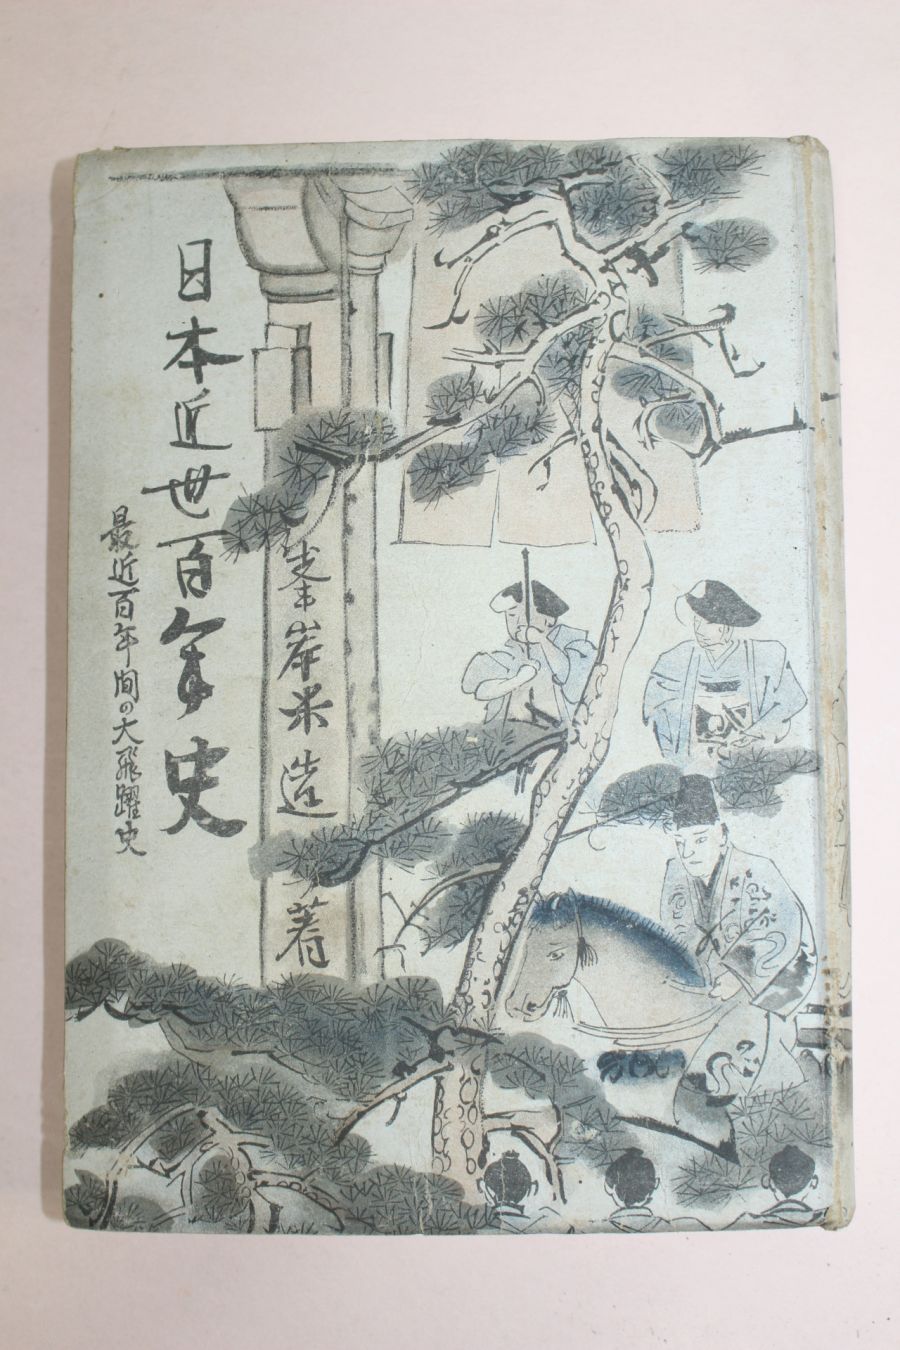 峯岸米造著
日本近世百年史
最近百年間の大飛躍史